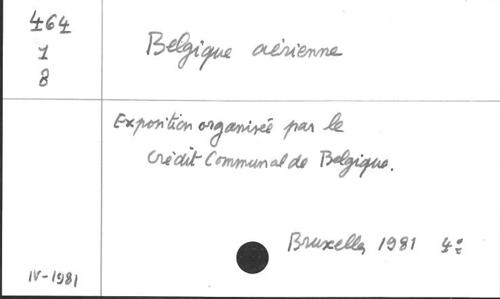 464
1
8
Belgique aérienne
Exposition organisée par le
Crédit Communal de Belgique.
Bruxelles 1981 4°
IV-1981